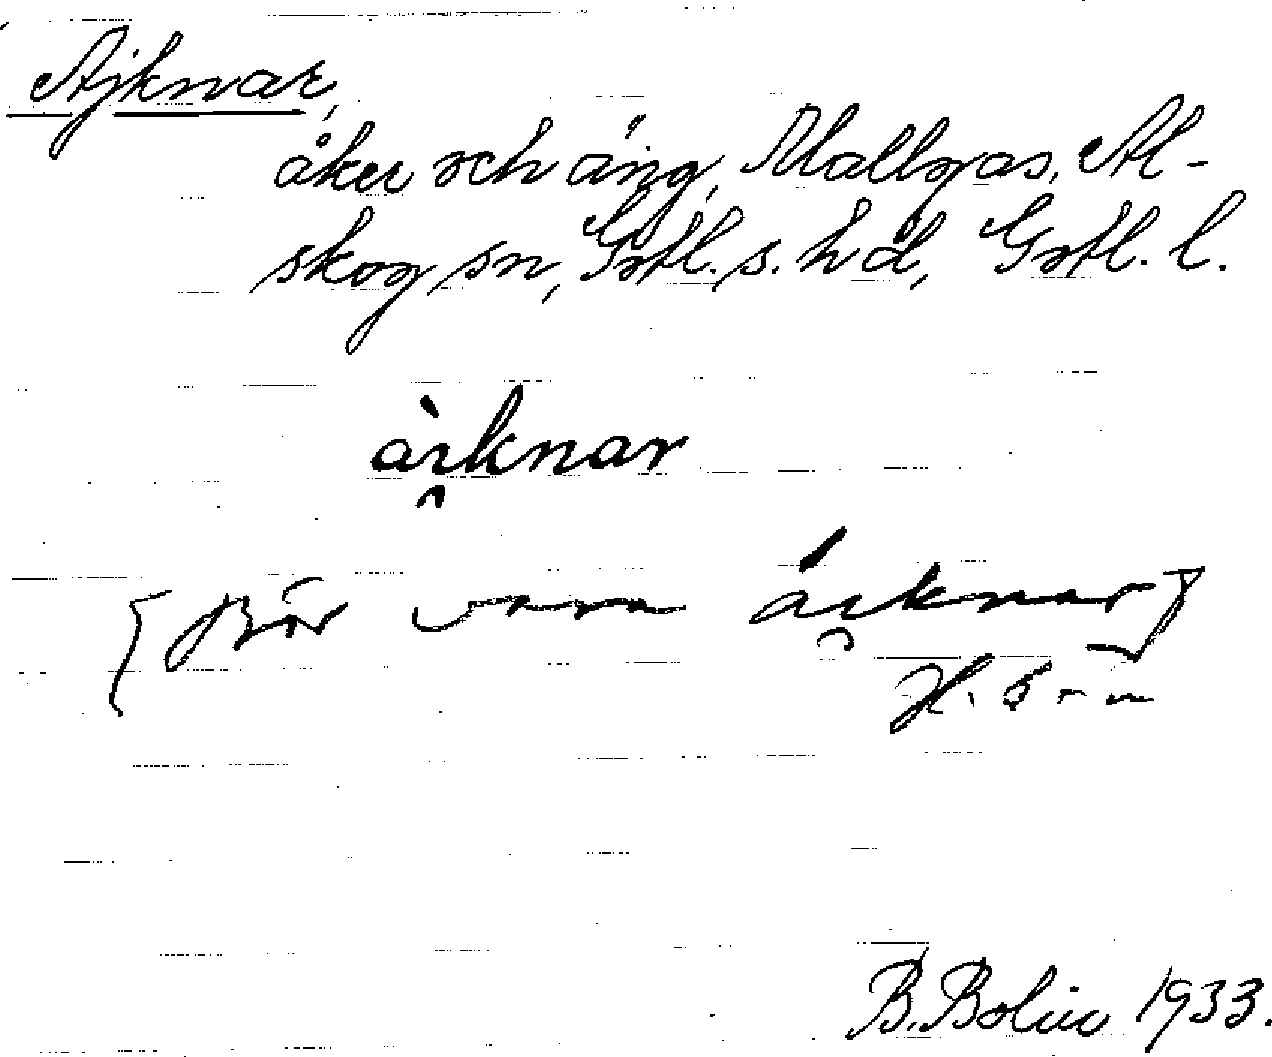 Ajknar,
åker och äng, Mallgas, Al-
skog sn, Gotl. s. hd, Gotl. l.
àı̯knar
[Bör vara áı̯knar]
B. Bolin 1933.